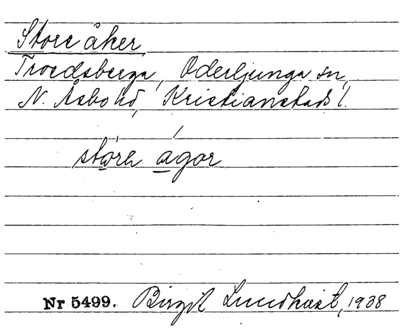 Store åker,
Troedsberga, Oderljunga sn,
N. Åsbo hd, Kristianstads l.
störa ágor
Nr 5499. Birgit Lundkvist, 1938